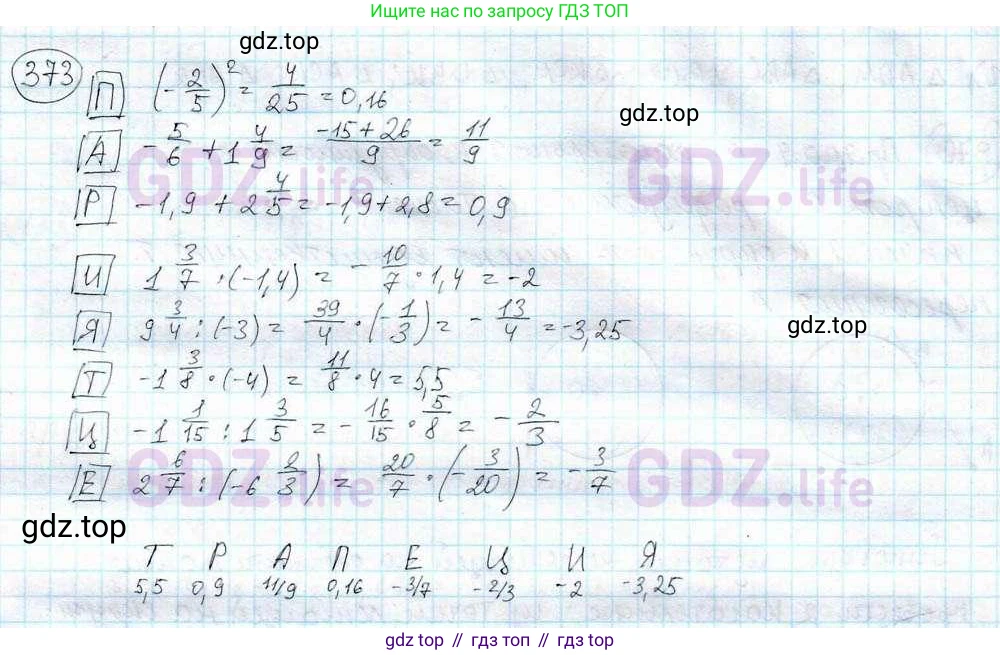 Ищите нас по запросу ГДЗ ТОП
gdz.top
373
П (-2/5)² = 4/25 = 0,16
gdz.top
А -5/6 + 1 4/9 = (-15+26)/9 = 11/9
GDZ.life GDZ.life
Р -1,9 + 2 4/5 = -1,9 + 2,8 = 0,9
И 1 3/7 · (-1,4) = -10/7 · 1,4 = -2
Я 9 3/4 : (-3) = 39/4 · (-1/3) = -13/4 = -3,25
gdz.top
Т -1 3/8 · (-4) = 11/8 · 4 = 5,5
Ц -1 1/15 : 1 3/5 = -16/15 · 5/8 = -2/3
Е 2 6/7 : (-6 2/3) = 20/7 · (-3/20) = -3/7
GDZ.life GDZ.life
gdz.top
Т Р А П Е Ц И Я
5,5 0,9 11/9 0,16 -3/7 -2/3 -2 -3,25
gdz.top // гдз топ // gdz.top